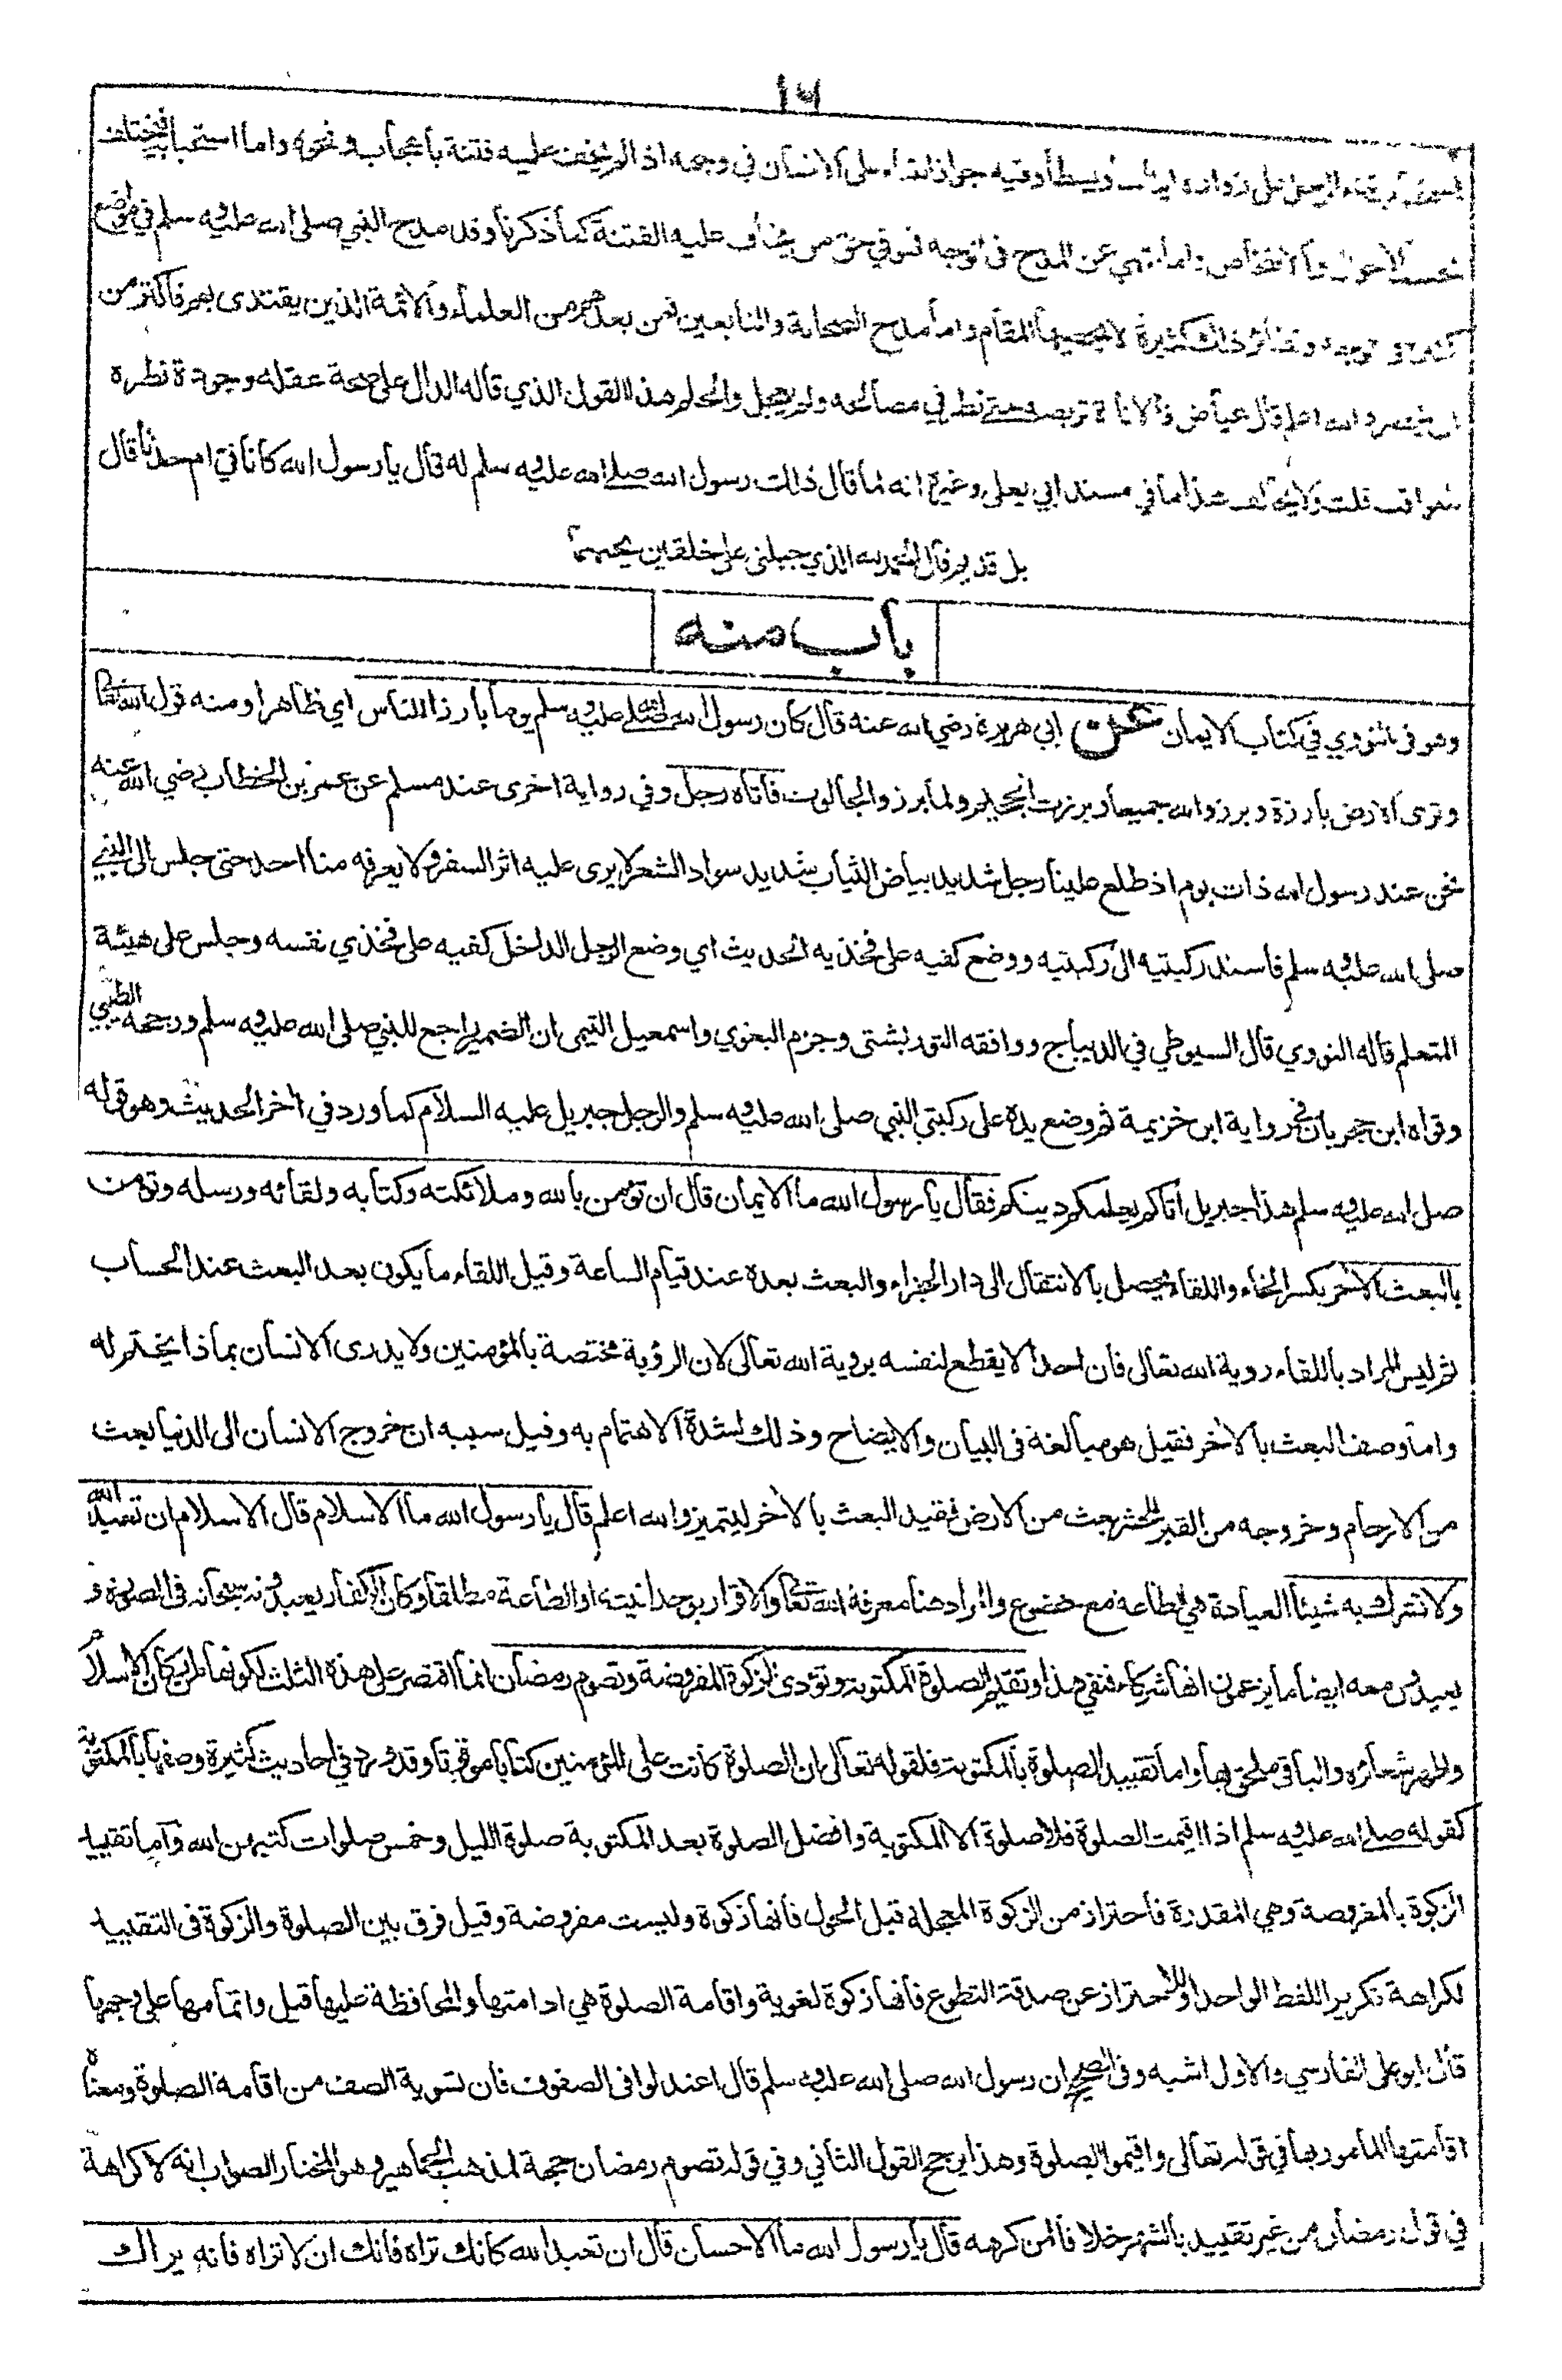 ١٦
الرجل على زواره وفيه جواز الثناء على الانسان في وجهه اذا لم يخف عليه فتنة باعجاب ونحوه واما استحبابه فيختلف
بحسب الاحوال والاشخاص واما النهي عن المدح في الوجه فهو في حق من يخاف عليه الفتنة كما ذكرنا وقد مدح النبي صلى الله عليه وسلم في مواضع
كثيرة في الوجه ونظائر ذلك كثيرة لا يحصيها المقام واما مدح الصحابة والتابعين فمن بعدهم من العلماء والائمة الذين يقتدى بهم فاكثر من
ان يحصر والله اعلم قال عياض والاناة تربصه حتى نظر في مصالحه ولم يعجل والحلم هذا القول الذي قاله الدال على صحة عقله وجودة نظره
للعواقب قلت ولا يخالف هذا ما في مسند ابي يعلى وغيره انه لما قال ذلك رسول الله صلى الله عليه وسلم له قال يا رسول الله كانا في ام حدثا قال
بل قديم قال الحمد لله الذي جبلني على خلقين يحبهما
باب منه
وهو في النووي في كتاب الايمان عن ابي هريرة رضي الله عنه قال كان رسول الله صلى الله عليه وسلم يوما بارزا للناس اي ظاهرا ومنه قول الله تعالى
وترى الارض بارزة وبرزوا لله جميعا وبرزت الجحيم ولما برزوا لجالوت فأتاه رجل وفي رواية اخرى عند مسلم عن عمر بن الخطاب رضي الله عنه
نحن عند رسول الله ذات يوم اذ طلع علينا رجل شديد بياض الثياب شديد سواد الشعر لا يرى عليه اثر السفر ولا يعرفه منا احد حتى جلس الى النبي
صلى الله عليه وسلم فاسند ركبتيه الى ركبتيه ووضع كفيه على فخذيه الحديث اي وضع الرجل الداخل كفيه على فخذي نفسه وجلس على هيئة
المتعلم قاله النووي قال السيوطي في الديباج ووافقه التوربشتى وجزم البغوي واسمعيل التيمى ان الضمير راجع للنبي صلى الله عليه وسلم ورجحه الطيبي
وقواه ابن حجر بان في رواية ابن خزيمة ثم وضع يده على ركبتي النبي صلى الله عليه وسلم والرجل جبريل عليه السلام كما ورد في اخر الحديث وهو قوله
صلى الله عليه وسلم هذا جبريل اتاكم يعلمكم دينكم فقال يا رسول الله ما الايمان قال ان تؤمن بالله وملائكته وكتابه ولقائه ورسله وتؤمن
بالبعث الآخر بكسر الخاء واللقاء يحصل بالانتقال الى دار الجزاء والبعث بعده عند قيام الساعة وقيل اللقاء ما يكون بعد البعث عند الحساب
ثم ليس المراد باللقاء روية الله تعالى فان احدا لا يقطع لنفسه بروية الله تعالى لان الرؤية مختصة بالمؤمنين ولا يدرى الانسان بماذا يختم له
واما وصف البعث بالآخر فقيل هو مبالغة في البيان والايضاح وذلك لشدة الاهتمام به وقيل سببه ان خروج الانسان الى الدنيا بعث
من الارحام وخروجه من القبر للحشر بعث من الارض فقيد البعث بالآخر ليتميز والله اعلم قال يا رسول الله ما الاسلام قال الاسلام ان تعبد الله
ولا تشرك به شيئا العبادة هي الطاعة مع خضوع والمراد هنا معرفة الله تعالى والاقرار بوحدانيته او الطاعة مطلقا وكان الكفار يعبدونه سبحانه في الصورة و
يعبدون معه ايضا ما يزعمون انها شركاء فنفي هذا وتقيم الصلوة المكتوبة وتؤدى الزكوة المفروضة وتصوم رمضان انما اقتصر على هذه الثلث لكونها من اركان الاسلام
واظهر شعائره والباقي ملحق بها واما تقييد الصلوة بالمكتوبة فلقوله تعالى ان الصلوة كانت على المؤمنين كتابا موقوتا وقد ورد في احاديث كثيرة وصفها بالمكتوبة
كقوله صلى الله عليه وسلم اذا اقيمت الصلوة فلا صلوة الا المكتوبة وافضل الصلوة بعد المكتوبة صلوة الليل وخمس صلوات كتبهن الله واما تقييد
الزكوة بالمفروضة وهي المقدرة فاحتراز من الزكوة المعجلة قبل الحول فانها زكوة وليست مفروضة وقيل فرق بين الصلوة والزكوة في التقييد
لكراهة تكرير اللفظ الواحد او للاحتراز عن صدقة التطوع فانها زكوة لغوية واقامة الصلوة هي ادامتها والمحافظة عليها قيل واتمامها على وجهها
قال ابو على الفارسي والاول اشبه وفي الصحيح ان رسول الله صلى الله عليه وسلم قال اعتدلوا في الصفوف فان تسوية الصف من اقامة الصلوة ومعناه
اقامتها المامور بها في قوله تعالى واقيموا الصلوة وهذا يرجح القول الثاني وفي قوله تصوم رمضان حجة لمذهب الجماهير وهو المختار الصواب انه لا كراهة
في قول رمضان من غير تقييد بالشهر خلافا لمن كرهه قال يا رسول الله ما الاحسان قال ان تعبد الله كانك تراه فانك ان لا تراه فانه يراك